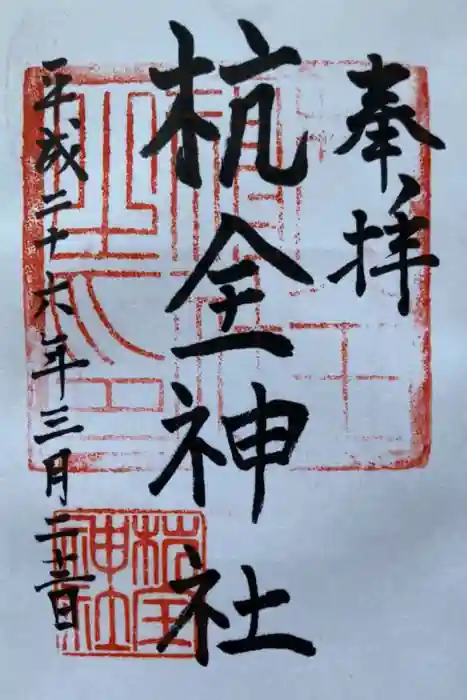 奉拝
杭全神社
平成二十六年三月二十二日
杭全
神社